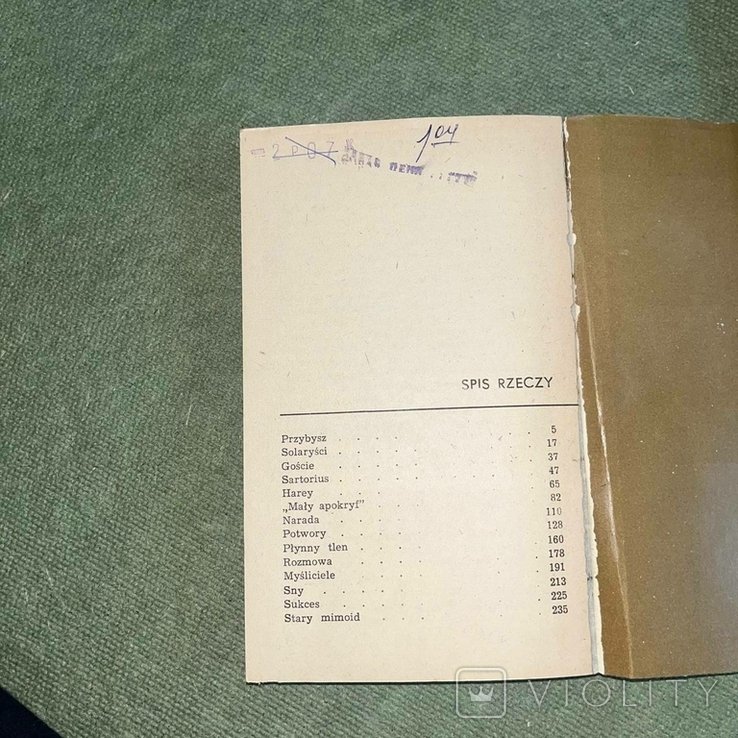 2P07
1 04
SPIS RZECZY
Przybysz . . . . . . 5
Solaryści . . . . . . 17
Goście . . . . . . 37
Sartorius . . . . . . 47
Harey . . . . . . 65
„Mały apokryf" . . . . . . 82
Narada . . . . . . 110
Potwory . . . . . . 128
Płynny tlen . . . . . . 160
Rozmowa . . . . . . 178
Myśliciele . . . . . . 191
Sny . . . . . . 213
Sukces . . . . . . 225
Stary mimoid . . . . . . 235
VIOLITY